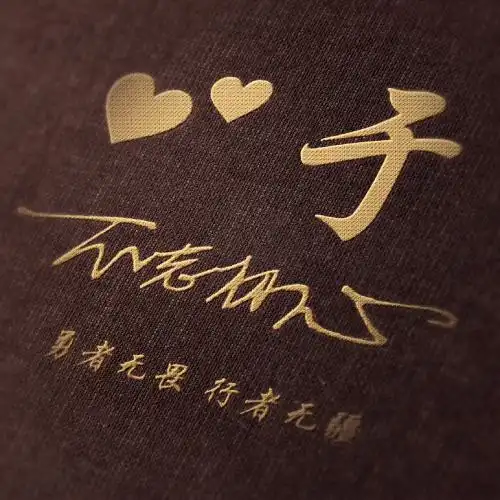 不忘初心
勇者无畏 行者无疆